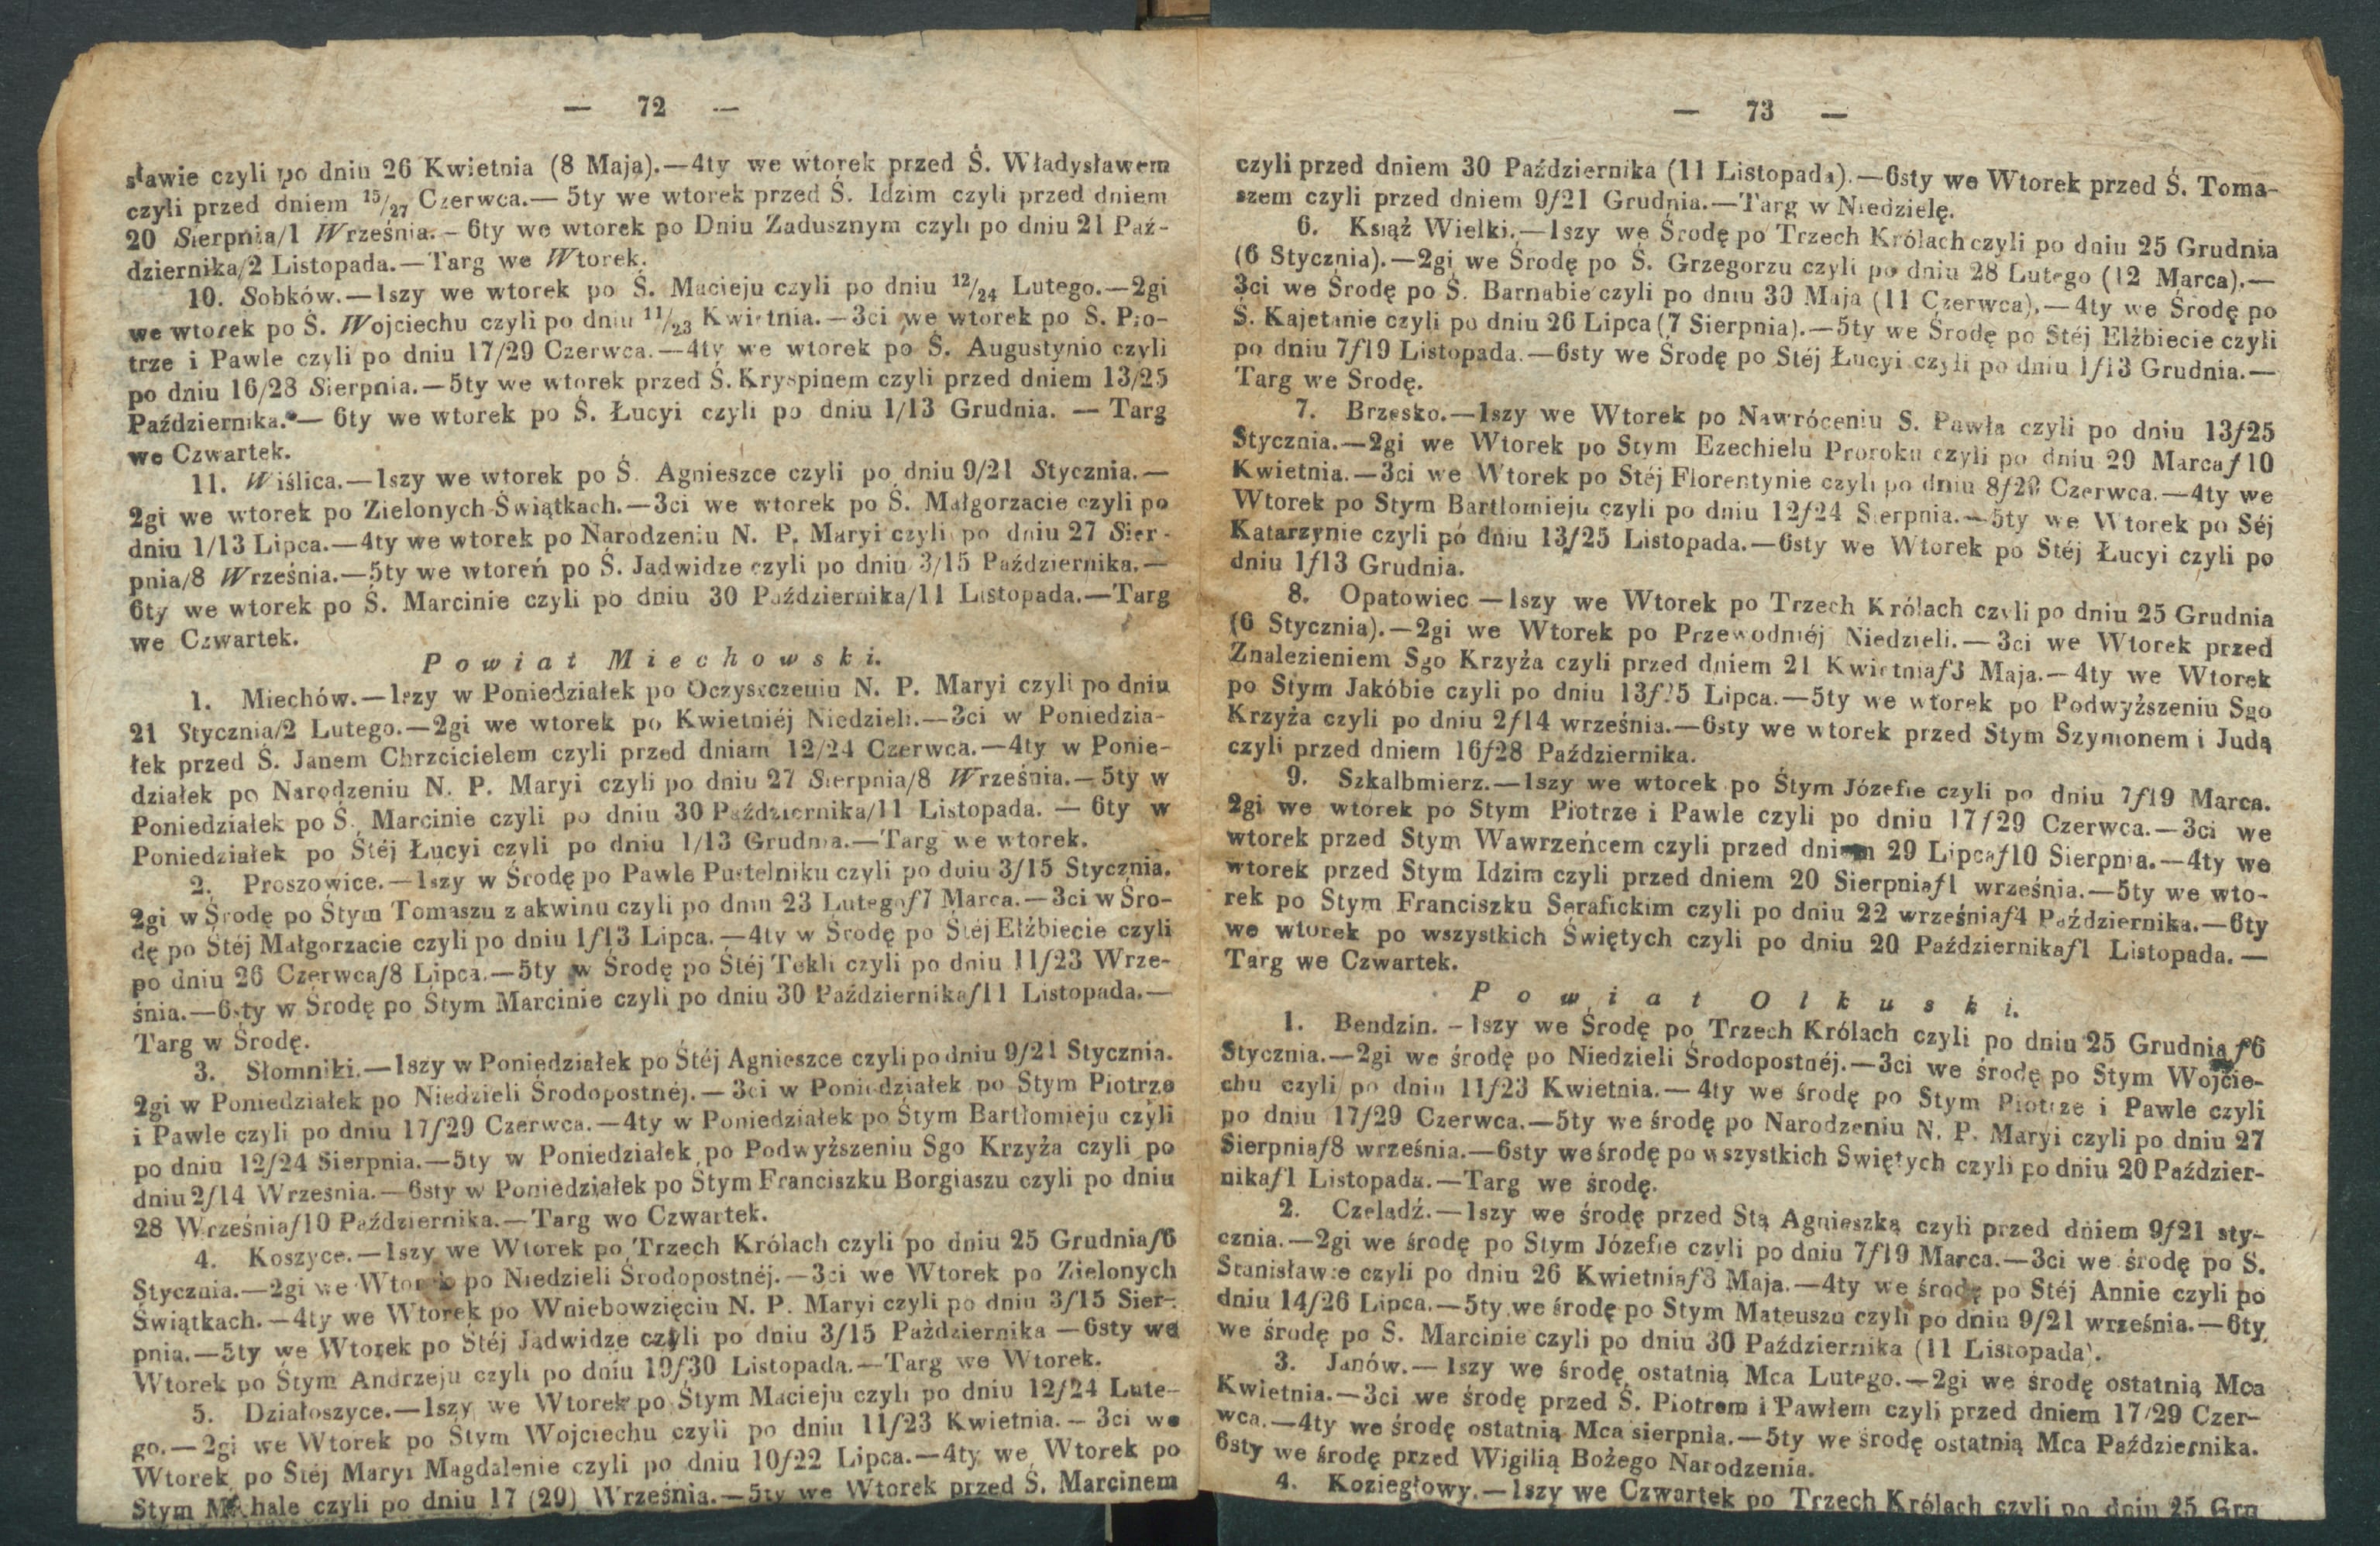 — 72 —
sławie czyli po dniu 26 Kwietnia (8 Maja).—4ty we wtorek przed Ś. Władysławem
czyli przed dniem 15/27 Czerwca.— 5ty we wtorek przed Ś. Idzim czyli przed dniem
20 Sierpnia/1 Września.– 6ty we wtorek po Dniu Zadusznym czyli po dniu 21 Paź-
dziernika/2 Listopada.—Targ we Wtorek.
10. Sobków.—1szy we wtorek po Ś. Macieju czyli po dniu 12/24 Lutego.—2gi
we wtorek po Ś. Wojciechu czyli po dniu 11/23 Kwietnia.—3ci we wtorek po S. Pio-
trze i Pawle czyli po dniu 17/29 Czerwca.—4ty we wtorek po Ś. Augustynie czyli
po dniu 16/28 Sierpnia.—5ty we wtorek przed Ś. Kryspinem czyli przed dniem 13/25
Października.— 6ty we wtorek po Ś. Łucyi czyli po dniu 1/13 Grudnia. — Targ
we Czwartek.
11. Wiślica.—1szy we wtorek po Ś. Agnieszce czyli po dniu 9/21 Stycznia.—
2gi we wtorek po Zielonych Świątkach.—3ci we wtorek po Ś. Małgorzacie czyli po
dniu 1/13 Lipca.—4ty we wtorek po Narodzeniu N. P. Maryi czyli po dniu 27 Sier-
pnia/8 Września.—5ty we wtoreń po Ś. Jadwidze czyli po dniu 3/15 Października.—
6ty we wtorek po Ś. Marcinie czyli po dniu 30 Października/11 Listopada.—Targ
we Czwartek.
Powiat Miechowski.
1. Miechów.—1szy w Poniedziałek po Oczyszczeniu N. P. Maryi czyli po dniu
21 Stycznia/2 Lutego.—2gi we wtorek po Kwietniéj Niedzieli.—3ci w Poniedzia-
łek przed Ś. Janem Chrzcicielem czyli przed dniam 12/24 Czerwca.—4ty w Ponie-
działek po Narodzeniu N. P. Maryi czyli po dniu 27 Sierpnia/8 Września.—5ty w
Poniedziałek po Ś. Marcinie czyli po dniu 30 Października/11 Listopada. — 6ty w
Poniedziałek po Stéj Łucyi czyli po dniu 1/13 Grudnia.—Targ we wtorek.
2. Proszowice.—1szy w Środę po Pawle Pustelniku czyli po dniu 3/15 Stycznia.
2gi w Środę po Stym Tomaszu z akwinu czyli po dniu 23 Lutego/7 Marca.—3ci w Śro-
dę po Stéj Małgorzacie czyli po dniu 1/13 Lipca.—4ty w Środę po Stéj Elżbiecie czyli
po dniu 26 Czerwca/8 Lipca.—5ty w Środę po Stéj Tekli czyli po dniu 11/23 Wrze-
śnia.—6sty w Środę po Stym Marcinie czyli po dniu 30 Października/11 Listopada.—
Targ w Środę.
3. Słomniki.—1szy w Poniedziałek po Stéj Agnieszce czyli po dniu 9/21 Stycznia.
2gi w Poniedziałek po Niedzieli Środopostnéj.—3ci w Poniedziałek po Stym Piotrze
i Pawle czyli po dniu 17/29 Czerwca.—4ty w Poniedziałek po Stym Bartłomieju czyli
po dniu 12/24 Sierpnia.—5ty w Poniedziałek po Podwyższeniu Sgo Krzyża czyli po
dniu 2/14 Września.—6sty w Poniedziałek po Stym Franciszku Borgiaszu czyli po dniu
28 Września/10 Października.—Targ wo Czwartek.
4. Koszyce.—1szy we Wtorek po Trzech Królach czyli po dniu 25 Grudnia/6
Stycznia.—2gi we Wtorek po Niedzieli Środopostnéj.—3ci we Wtorek po Zielonych
Świątkach.—4ty we Wtorek po Wniebowzięciu N. P. Maryi czyli po dniu 3/15 Sier-
pnia.—5ty we Wtorek po Stéj Jadwidze czyli po dniu 3/15 Października —6sty we
Wtorek po Stym Andrzeju czyli po dniu 19/30 Listopada.—Targ we Wtorek.
5. Działoszyce.—1szy we Wtorek po Stym Macieju czyli po dniu 12/24 Lute-
go.—2gi we Wtorek po Stym Wojciechu czyli po dniu 11/23 Kwietnia.– 3ci we
Wtorek po Stéj Maryi Magdalenie czyli po dniu 10/22 Lipca.—4ty we Wtorek po
Stym Michale czyli po dniu 17 (29) Września.—5ty we Wtorek przed Ś. Marcinem
— 73 —
czyli przed dniem 30 Października (11 Listopada).—6sty we Wtorek przed Ś. Toma-
szem czyli przed dniem 9/21 Grudnia.—Targ w Niedzielę.
6. Książ Wielki.—1szy we Środę po Trzech Królach czyli po dniu 25 Grudnia
(6 Stycznia).—2gi we Środę po Ś. Grzegorzu czyli po dniu 28 Lutego (12 Marca).—
3ci we Środę po Ś. Barnabie czyli po dniu 30 Maja (11 Czerwca).—4ty we Środę po
Ś. Kajetanie czyli po dniu 26 Lipca (7 Sierpnia).—5ty we Środę po Stéj Elżbiecie czyli
po dniu 7/19 Listopada.—6sty we Środę po Stéj Łucyi czyli po dniu 1/13 Grudnia.—
Targ we Srodę.
7. Brzesko.—1szy we Wtorek po Nawróceniu S. Pawła czyli po dniu 13/25
Stycznia.—2gi we Wtorek po Stym Ezechielu Proroku czyli po dniu 29 Marca/10
Kwietnia.—3ci we Wtorek po Stéj Florentynie czyli po dniu 8/20 Czerwca.—4ty we
Wtorek po Stym Bartłomieju czyli po dniu 12/24 Sierpnia.—5ty we Wtorek po Séj
Katarzynie czyli po dniu 13/25 Listopada.—6sty we Wtorek po Stéj Łucyi czyli po
dniu 1/13 Grudnia.
8. Opatowiec —1szy we Wtorek po Trzech Królach czyli po dniu 25 Grudnia
(6 Stycznia).—2gi we Wtorek po Przewodniéj Niedzieli.—3ci we Wtorek przed
Znalezieniem Sgo Krzyża czyli przed dniem 21 Kwietnia/3 Maja.—4ty we Wtorek
po Stym Jakóbie czyli po dniu 13/25 Lipca.—5ty we wtorek po Podwyższeniu Sgo
Krzyża czyli po dniu 2/14 września.—6sty we wtorek przed Stym Szymonem i Judą
czyli przed dniem 16/28 Października.
9. Szkalbmierz.—1szy we wtorek po Stym Józefie czyli po dniu 7/19 Marca.
2gi we wtorek po Stym Piotrze i Pawle czyli po dniu 17/29 Czerwca.—3ci we
wtorek przed Stym Wawrzeńcem czyli przed dniem 29 Lipca/10 Sierpnia.—4ty we
wtorek przed Stym Idzim czyli przed dniem 20 Sierpnia/1 września.—5ty we wto-
rek po Stym Franciszku Serafickim czyli po dniu 22 września/4 Października.—6ty
we wtorek po wszystkich Świętych czyli po dniu 20 Października/1 Listopada.—
Targ we Czwartek.
Powiat Olkuski.
1. Bendzin.–1szy we Środę po Trzech Królach czyli po dniu 25 Grudnia/6
Stycznia.—2gi we środę po Niedzieli Srodopostnéj.—3ci we środę po Stym Wojcie-
chu czyli po dniu 11/23 Kwietnia.—4ty we środę po Stym Piotrze i Pawle czyli
po dniu 17/29 Czerwca.—5ty we środę po Narodzeniu N. P. Maryi czyli po dniu 27
Sierpnia/8 września.—6sty we środę po wszystkich Swiętych czyli po dniu 20 Paździer-
nika/1 Listopada.—Targ we środę.
2. Czeladź.—1szy we środę przed Stą Agnieszką czyli przed dniem 9/21 sty-
cznia.—2gi we środę po Stym Józefie czyli po dniu 7/19 Marca.—3ci we środę po S.
Stanisławie czyli po dniu 26 Kwietnia/8 Maja.—4ty we środę po Stéj Annie czyli po
dniu 14/26 Lipca.—5ty we środę po Stym Mateuszu czyli po dniu 9/21 września.—6ty
we środę po S. Marcinie czyli po dniu 30 Października (11 Listopada).
3. Janów.—1szy we środę ostatnią Mca Lutego.—2gi we środę ostatnią Mca
Kwietnia.—3ci we środę przed Ś. Piotrem i Pawłem czyli przed dniem 17/29 Czer-
wca.—4ty we środę ostatnią Mca sierpnia.—5ty we środę ostatnią Mca Października.
6sty we środę przed Wigilią Bożego Narodzenia.
4. Koziegłowy.—1szy we Czwartek po Trzech Królach czyli po dniu 25 Gru